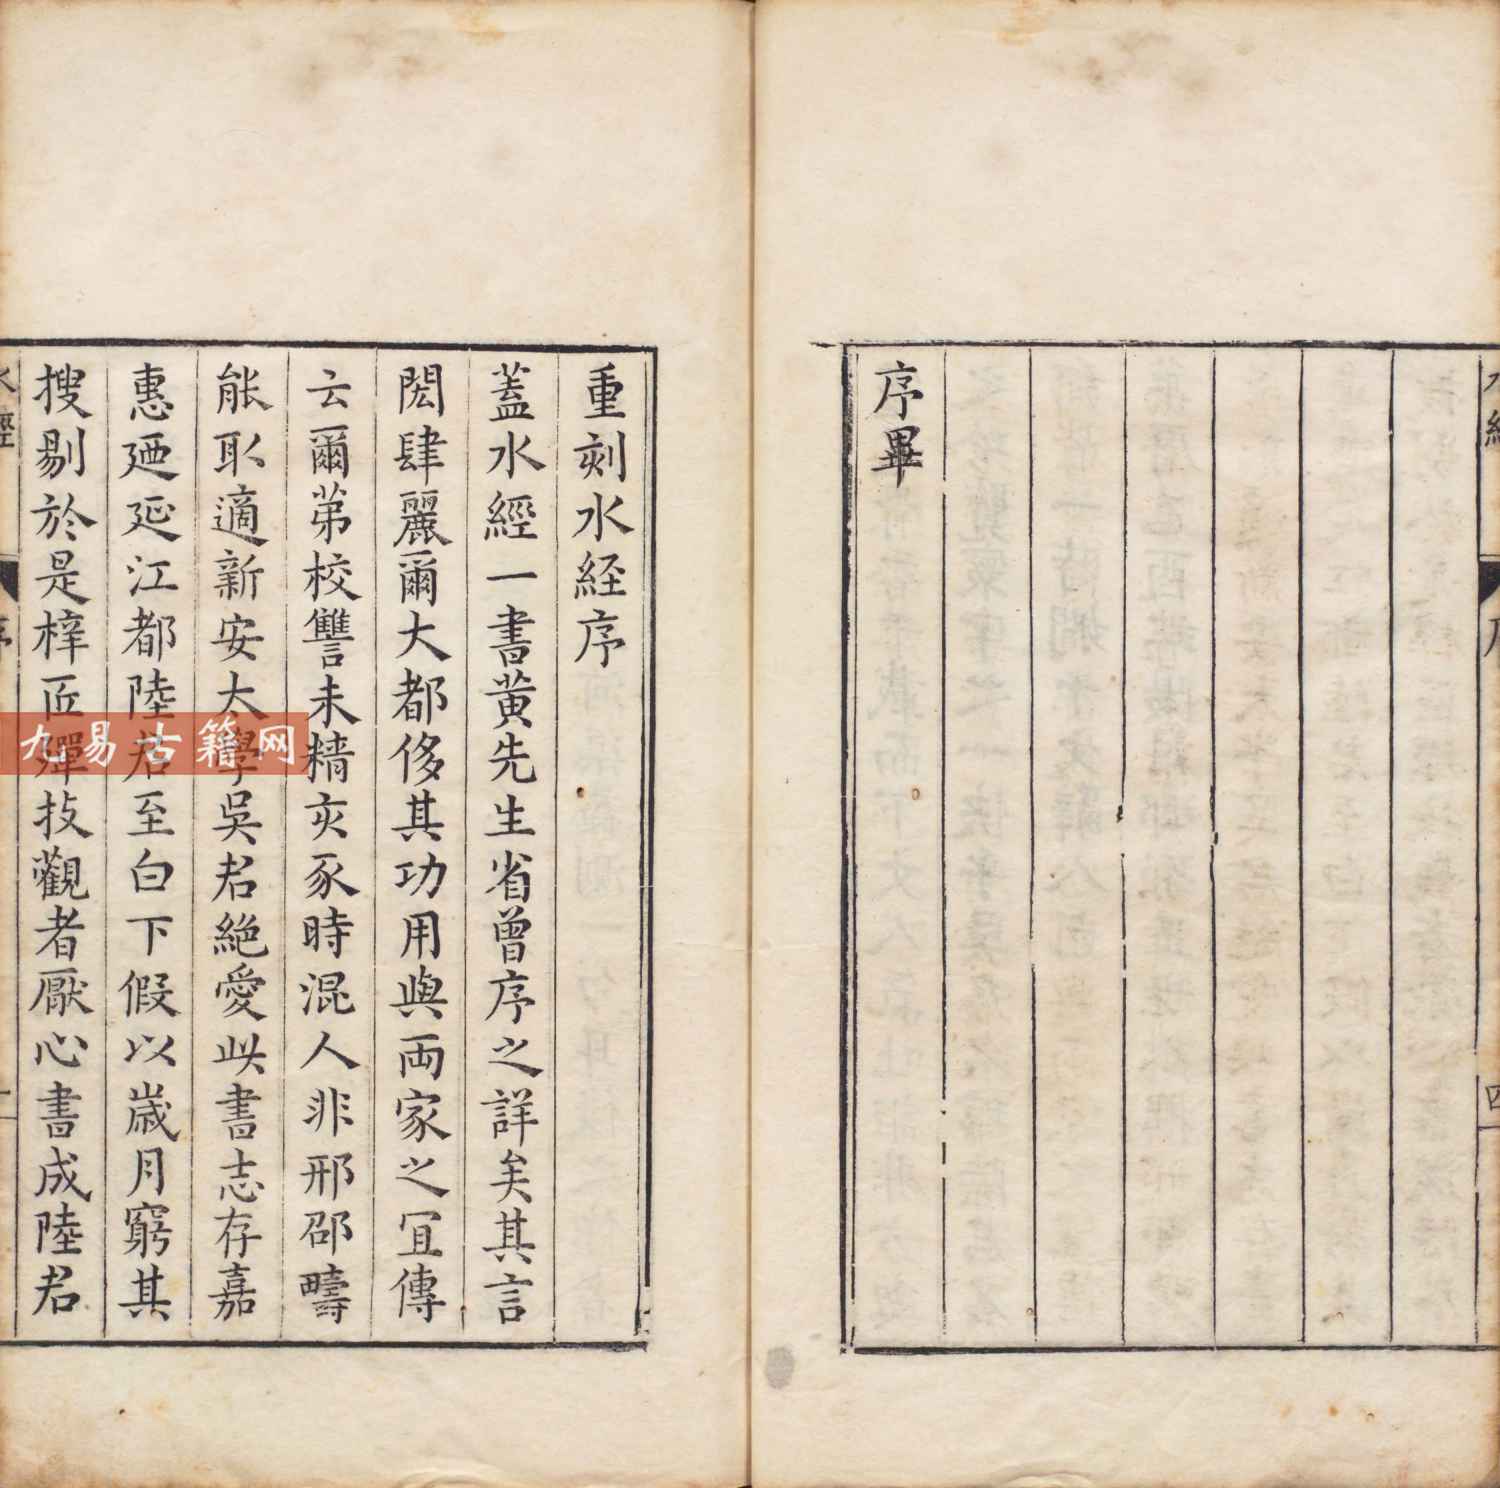 序畢
重刻水経序
蓋水經一書黄先生省曾序之詳矣其言
閎肆麗爾大都侈其功用與両家之冝傳
云爾苐校讐未精亥豕時混人非邢邵疇
能取適新安太學吳君絶愛此書志存嘉
惠廼延江都陸君至白下假以歳月窮其
搜剔於是梓匠殫技觀者厭心書成陸君
水經
序
四
九易古籍网